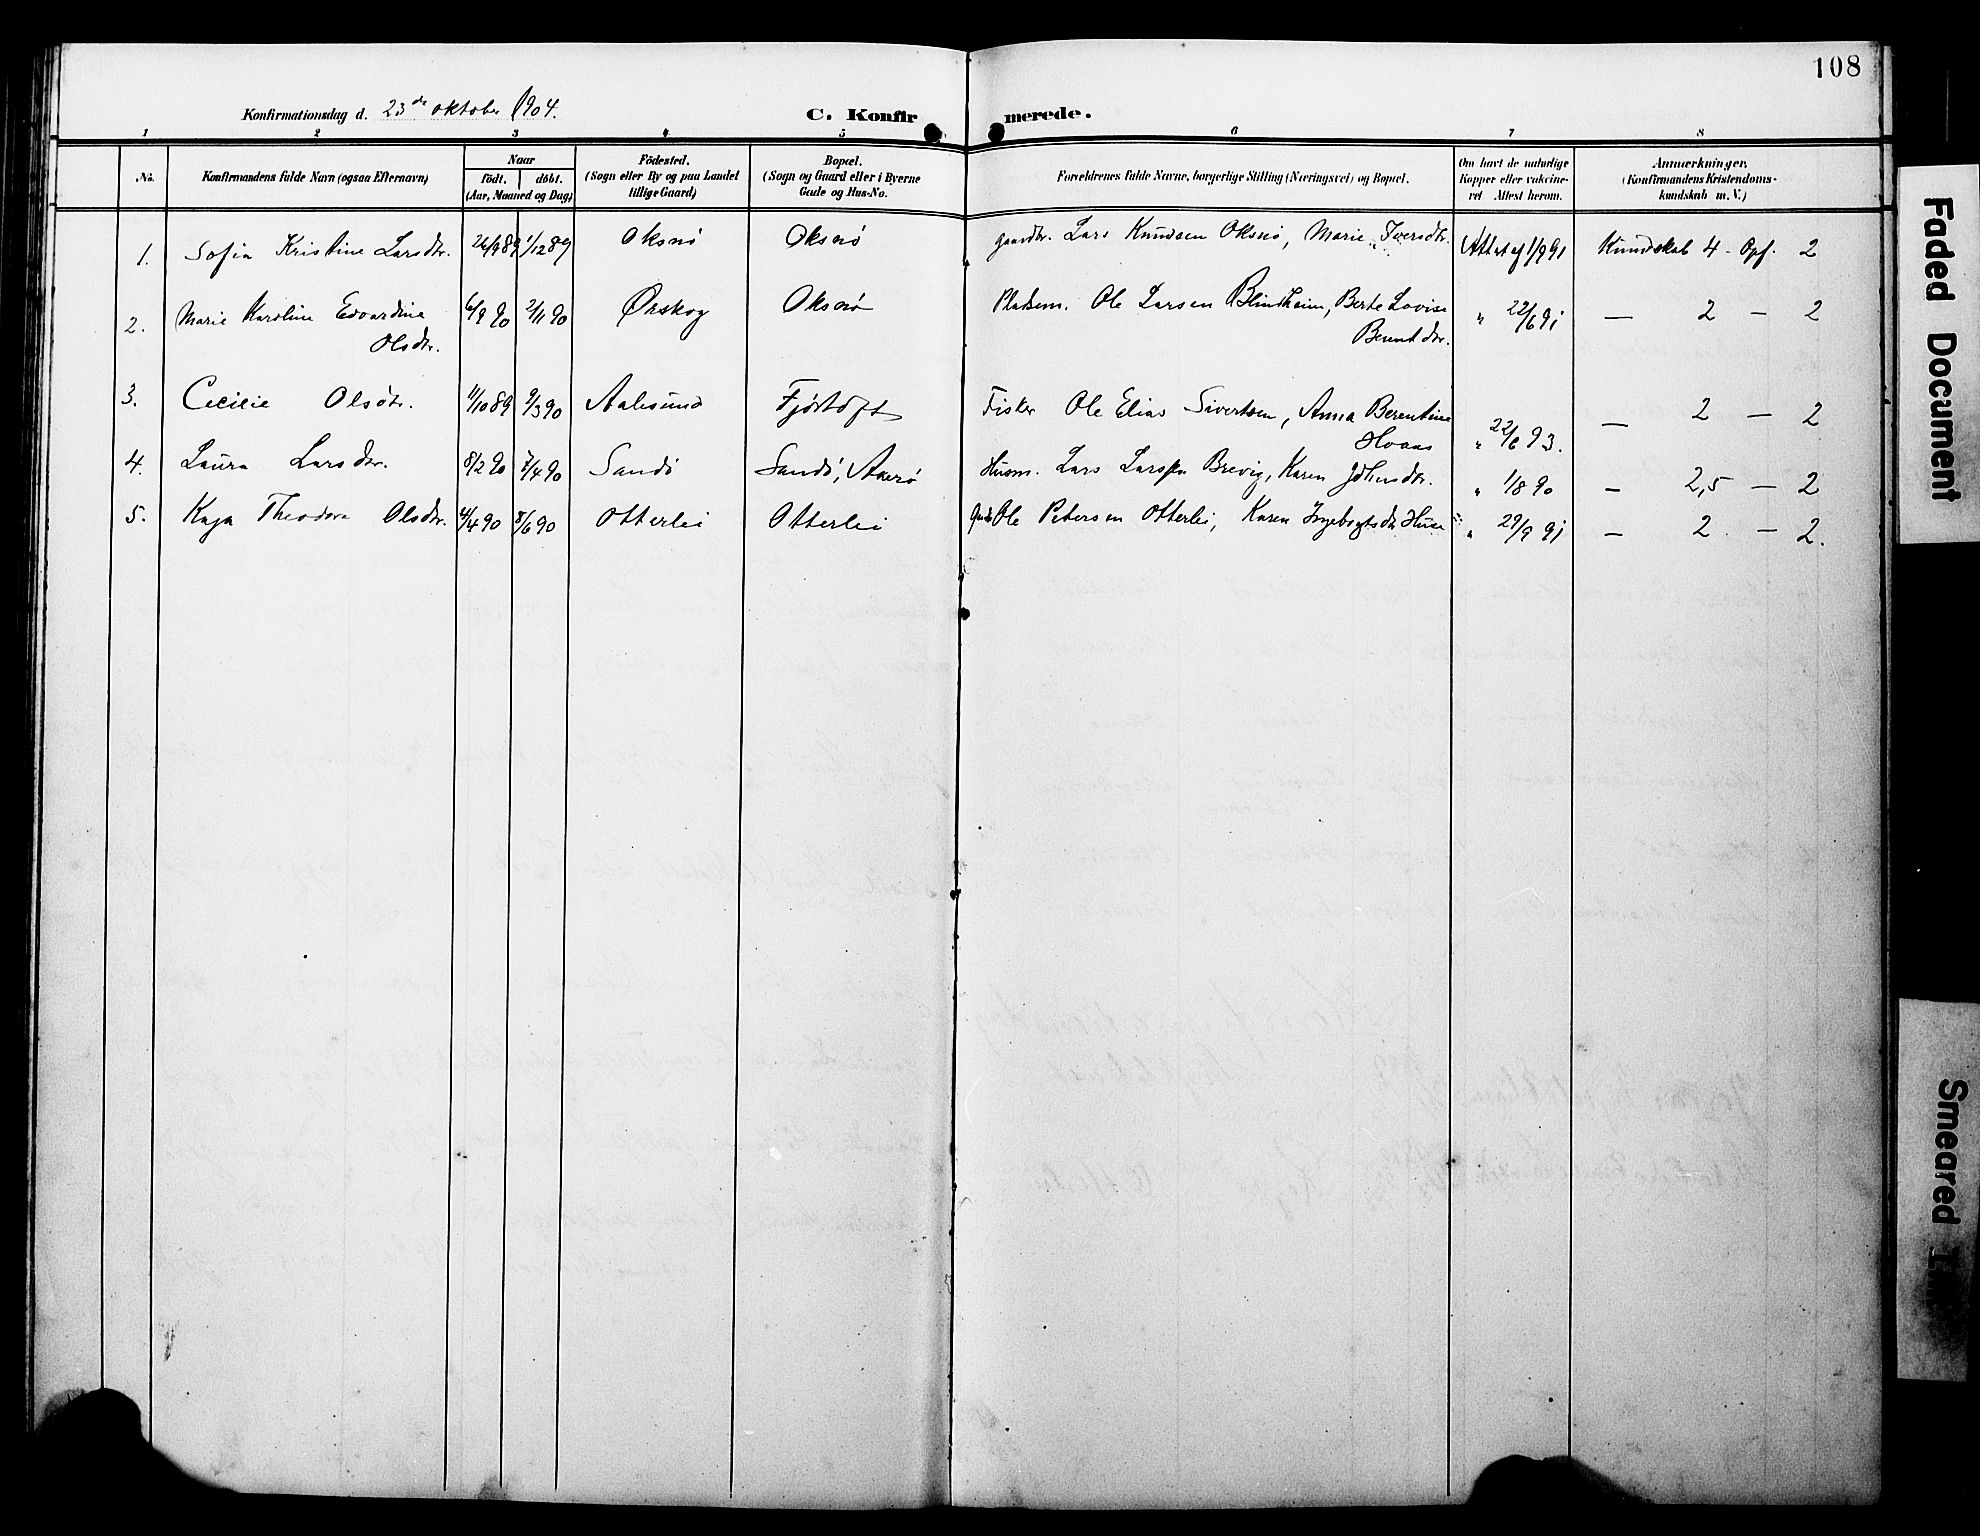 108
Konfirmationsdag d. 23de oktober 1904.
C. Konfirmerede.
1 2 3 4 5 6 7 8
No.
Konfirmandens fulde Navn (ogsaa Efternavn)
Naar
født. døbt.
(Aar, Maaned og Dag)
Födested.
(Sogn eller By og paa Landet
tillige Gaard)
Bopæl.
(Sogn og Gaard eller i Byerne
Gade og Hus-No.
Forældrenes fulde Navne, borgerlige Stilling (Næringsvei) og Bopæl.
Om havt de naturlige
Kopper eller vakcine-
ret Attest herom.
Anmærkninger.
(Konfirmandens Kristendoms-
kundskab m. V.)
1. Sofia Kristine Larsdtr. 26/9 89 1/12 89 Oksnö Oksnö gaardbr. Lars Knudsen Oksnö, Marie Iversdtr. Attest af 1/9 91 Kundskab 4 - Opf. 2
2. Marie Karoline Edvardine 6/9 90 2/11 90 Ørskog Oksnö Pladsm. Ole Larsen Blindheim, Berte Lovise " 22/6 91 — 2 — 2
Olsdtr. Berntdtr.
3. Cecilie Olsdtr. 11/10 89 9/3 90 Aalesund Fjörtoft Fisker Ole Elias Sivertsen, Anna Berentine — 2 — 2
Hovas " 22/6 93.
4. Laura Larsdtr. 8/2 90 7/4 90 Sandö Sandö, Aarö Husm. Lars Larsen Brevig, Karen Johnsdtr. " 1/8 90 — 2,5 — 2
5. Kaja Theodora Olsdtr. 4/4 90 8/6 90 Otterlei Otterlei Ole Petersen Otterlei, Karen Ingebrigtsdtr Huse " 29/9 91 — 2. — 2.
Faded Document
Smeared